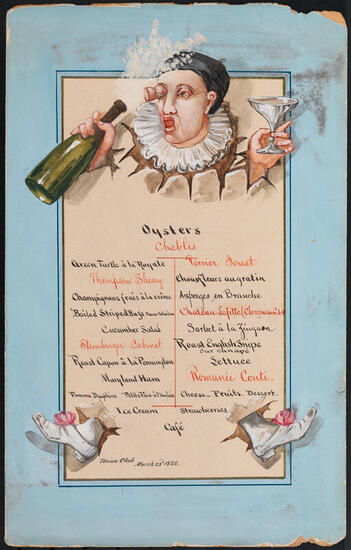 Oysters
Chablis
Green Turtle à la Royale
Thompson Sherry
Champignons frais à la crême
Boiled Striped Bass
Cucumber Salad
Steinberger Cabinet
Roast Capon à la Pennington
Maryland Ham
Pomme Dauphine Petits Pois à l'Anglaise
Perrier Jouet
Choux fleurs au gratin
Asperges en Branche
Chateau Lafitte
Sorbet à la Zingara
Roast English Snipe
Sur canapé
Lettuce
Romanée Conté.
Cheese. Fruits. Dessert.
Ice Cream Strawberries
Café
Union Club